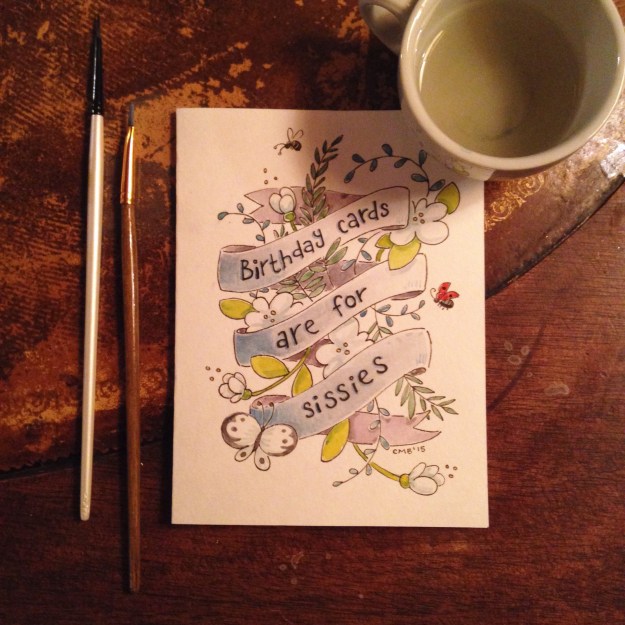 Birthday cards
are for
sissies
CMB '15